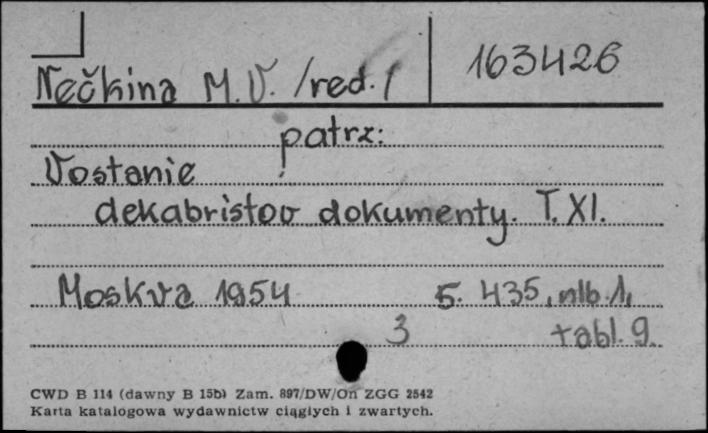 Nečkina M.V. /red./ 163426
patrz:
Vostanie
dekabristov dokumenty. T. XI.
Moskva 1954 S. 435, nlb. 1,
3 tabl. 9.
CWD B 114 (dawny B 15b) Zam. 897/DW/On ZGG 2542
Karta katalogowa wydawnictw ciągłych i zwartych.